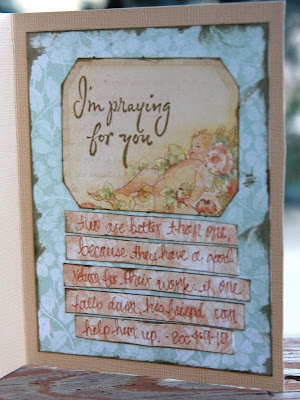 I'm praying
for you
two are better than one,
because they have a good
return for their work: if one
falls down, his friend can
help him up. - Ecc 4:9-10